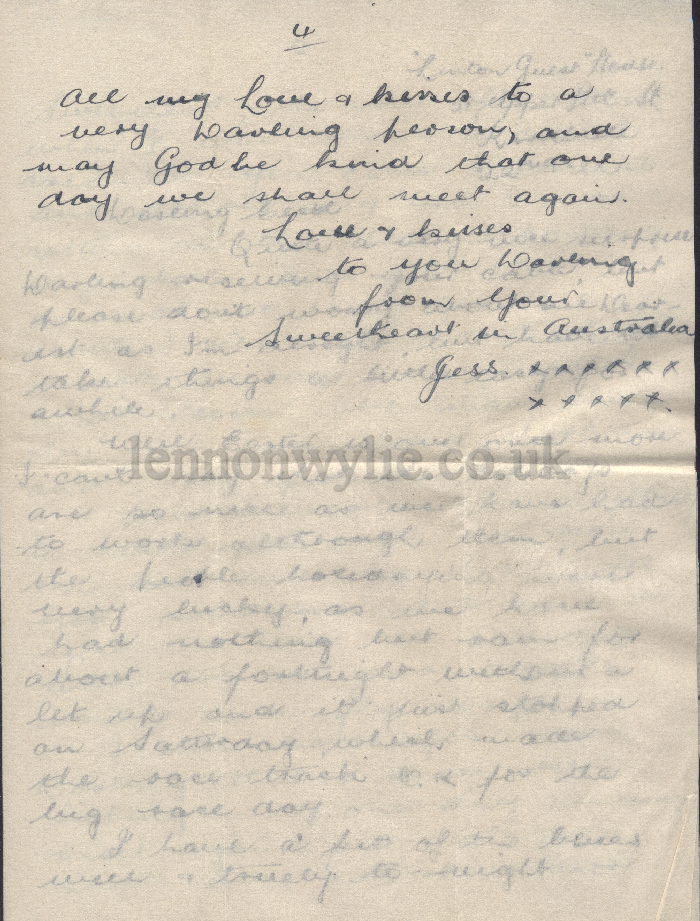 4
All my Love & kisses to a
very Darling person, and
may God be kind that one
day we shall meet again.
Love & kisses
to you Darling
from Your
Sweetheart in Australia
Jess. x x x x x x
x x x x x.
"Linton Guest" House
St
Darling
Quite a very nice surprise
Darling receiving your
please don't worry
est as I'm
take things
awhile.
Well Easter is over once more
I can't
are so nice as we have had
to work although them, but
the people
very lucky, as we have
had nothing but rain for
about a fortnight without a
let up and it just stopped
on Saturday which made
the race track O.K for the
big race day
I have a bit of the blues
well & lonely to night
lennonwylie.co.uk